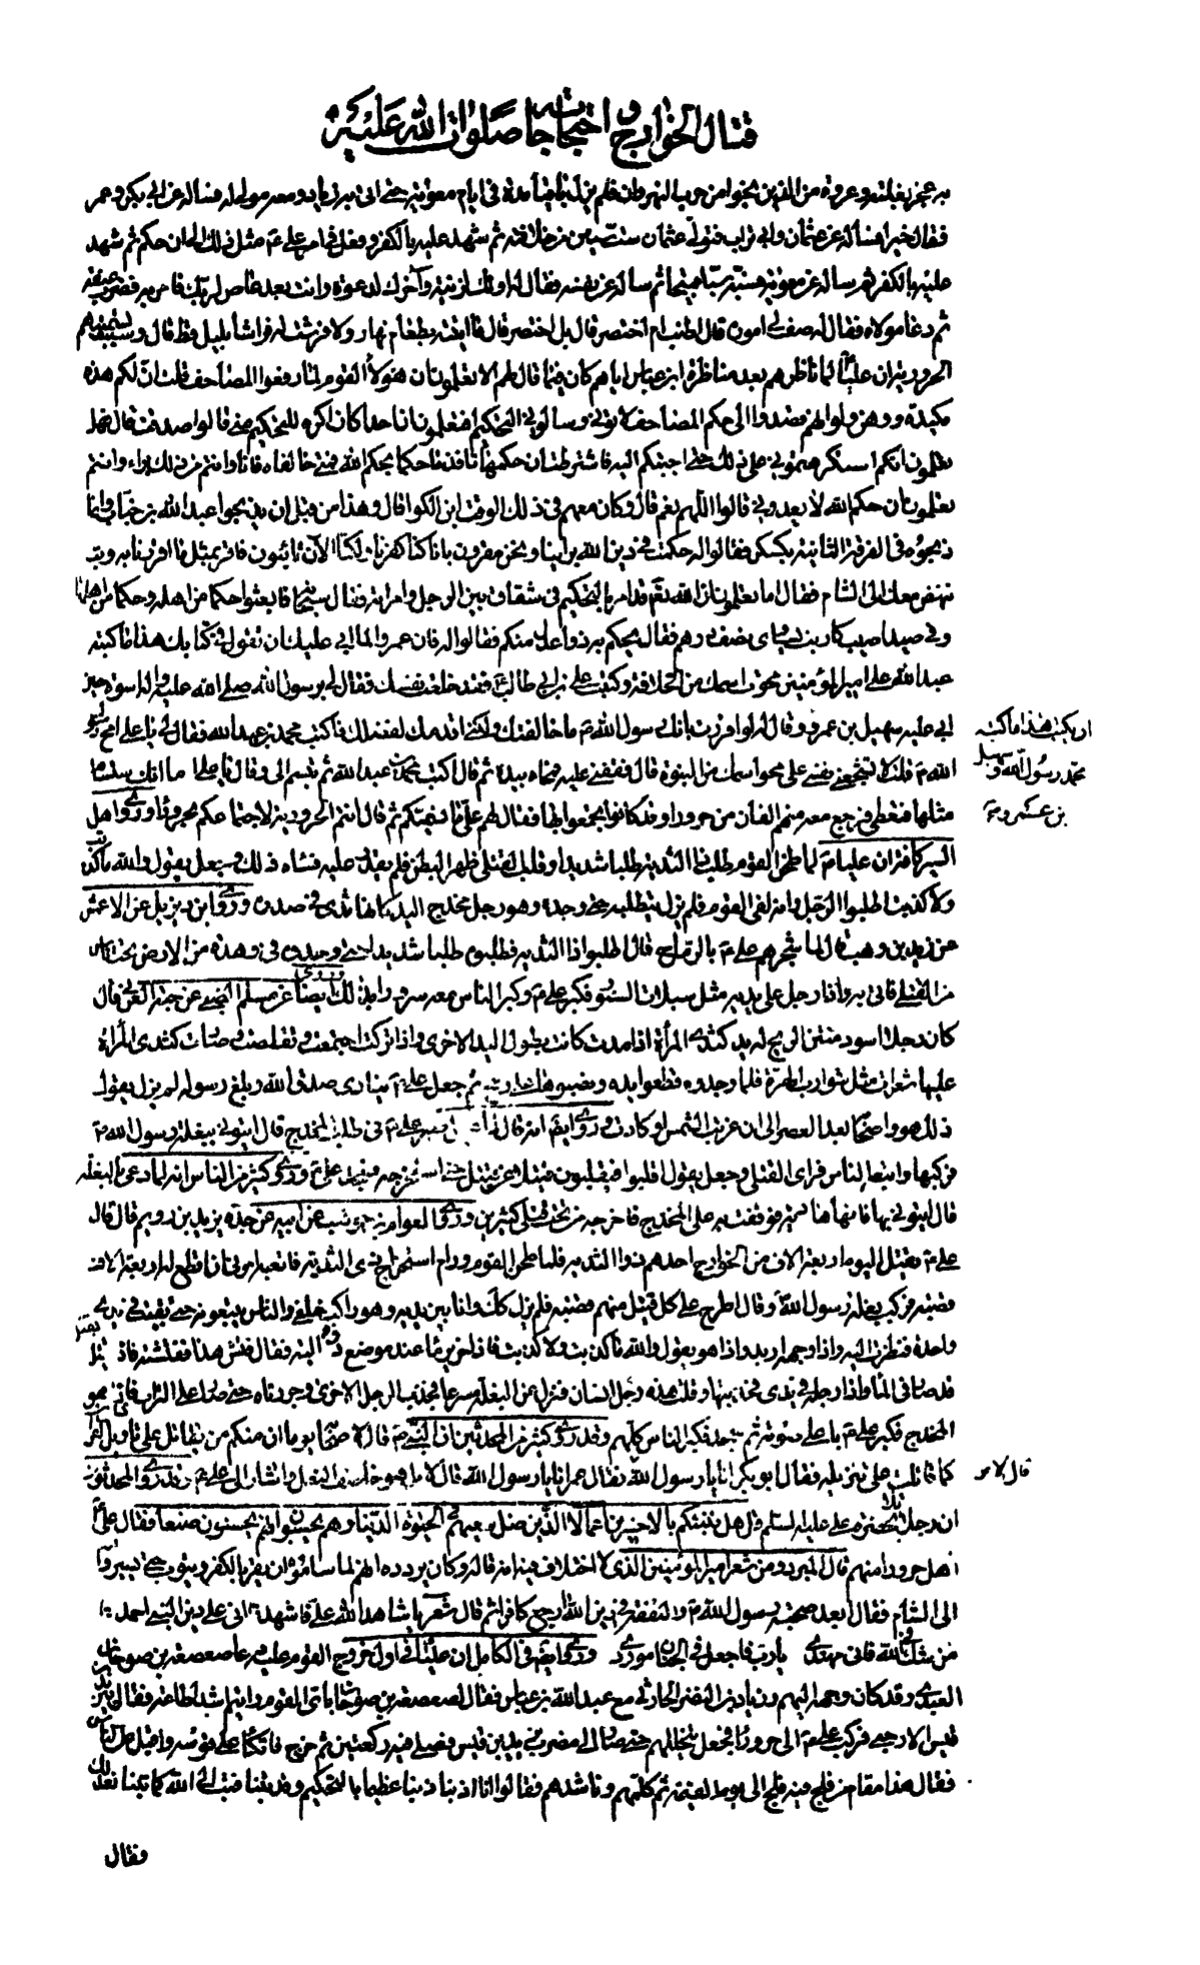 قتال الخوارج و احتجاجاته صلوات الله عليه
فقال خيرا فسأله عن عثمان وابي تراب فتولى عثمان ست سنين من خلافته ثم شهد عليه بالكفر وفعل في امر علي ع مثل ذلك الى ان حكم ثم شهد
عليه بالكفر ثم سأله عن معوية فسبه سبا قبيحا ثم سأله عن نفسه فقال له اولك لزنية وآخرك لدعوة وانت بعد عاص لربك فامر به فضرب عنقه
ثم دعا مولاه فقال له صف لي اموره قال اطنب ام اختصر قال بل اختصر قال ما اتيته بطعام نهار ولا فرشت له فراشا بليل قط قال وسبب تسميتهم
الحرورية ان عليا لما ناظرهم بعد مناظرة ابن عباس اياهم كان فيما قال لهم الا تعلمون ان هؤلاء القوم لما رفعوا المصاحف قلت ان لكم هذه
مكيدة ووهن ولو انهم قصدوا الى حكم المصاحف لاتوني وسالوني التحكيم افتعلمون ان احدا كان اكره للتحكيم مني قالوا صدقت قال فهل
تعلمون انكم استكرهتموني على ذلك حتى اجبتكم اليه فاشترطت ان حكمهما نافذ ما حكما بحكم الله فمتى خالفاه فانا وانتم من ذلك براء وانتم
تعلمون ان حكم الله لا يعدوني قالوا اللهم نعم قال وكان معهم في ذلك الوقت ابن الكوا قال وهذا من قبل ان يذبحوا عبد الله بن خباب وانما
ذبحوه في الفرقة الثانية بكسكر فقالوا له حكمت في دين الله برأينا ونحن مقرون بانا كنا كفرنا ولكنا الآن تائبون فاقر بمثل ما اقررنا به وتب
ننهض معك الى الشام فقال اما تعلمون ان الله تعم قد امر بالتحكيم في شقاق بين الرجل وامراته فقال سبحانه فابعثوا حكما من اهله وحكما من اهلها
وفي صيد اصيب كارنب يساوي نصف درهم فقال يحكم به ذوا عدل منكم فقالوا له فان عمروا لما ابى عليك ان تقول في كتابك هذا ما كتبه
عبد الله علي امير المؤمنين محوت اسمك من الخلافة وكتبت علي بن ابي طالب فقد خلعت نفسك فقال لي برسول الله صلى الله عليه واله اسوة حين
ابى عليه سهيل بن عمرو وقال له لو اقررت بانك رسول الله ص ما خالفتك ولكني اقدمك لفضلك فاكتب محمد بن عبد الله فقال لي يا علي امح رسول
ان يكتب هذا ما كتبه
محمد رسول الله وسهيل
بن عمرو
الله ص قلت لا تشجعني نفسي على محو اسمك من النبوة قال فقضى عليه فمحاه بيده ثم قال اكتب محمد بن عبد الله ثم تبسم الي وقال يا علي اما انك ستسام
مثلها فتعطي فرجع معه منهم الفان من حروراء وقد كانوا تجمعوا بها فقال لهم علي ما نسميكم ثم قال انتم الحرورية لاجتماعكم بحروراء وروى اهل
السير كافة ان عليا لما طحن القوم طلب ذا الثدية طلبا شديدا وقلب القتلى ظهرا لبطن فلم يقدر عليه فساءه ذلك وجعل يقول والله ما كذبت
ولا كذبت اطلبوا الرجل وانه لفي القوم فلم يزل يتطلبه حتى وجده وهو رجل مخدج اليد كانها ثدي في صدره وروى ابن ديزيل عن الاعمش
عن زيد بن وهب قال لما شجرهم علي ع بالرماح قال اطلبوا ذا الثدية فطلبوه طلبا شديدا حتى وجدوه في وهدة من الارض تحت ناس
من القتلى فاتي به واذا رجل على يديه مثل سبلات السنور فكبر علي ع وكبر الناس معه سرورا بذلك وروى ايضا عن مسلم الضبي عن حبة العرني قال
كان رجلا اسود منتن الريح له يد كثدي المراة اذا مدت كانت بطول اليد الاخرى واذا تركت اجتمعت وتقلصت وصارت كثدي المراة
عليها شعرات مثل شوارب الهرة فلما وجدوه قطعوا يده ونصبوها على رمح ثم جعل علي ع ينادي صدق الله وبلغ رسوله لم يزل يقول
ذلك هو واصحابه بعد العصر الى ان غربت الشمس او كادت وروى ايضا انه قال لما عيل صبر علي ع في طلب المخدج قال ايتوني ببغلة رسول الله ص
فركبها واتبعه الناس فراى القتلى وجعل يقول اقلبوا فيقلبون قتيلا عن قتيل حتى استخرجه فسجد علي ع وروى كثير من الناس انه لما دعى بالبغلة
قال ايتوني بها فانها هادية فوقفت به على المخدج فاخرجه من تحت قتلى كثيرين وروى العوام بن حوشب عن ابيه عن جده يزيد بن رويم قال قال
علي ع يقتل اليوم اربعة الاف من الخوارج احدهم ذو الثدية فلما طحن القوم ورام استخراج ذي الثدية فاتعبه امرني ان اقطع له اربعة الاف
قصبة فركب بغلة رسول الله وقال اطرح على كل قتيل منهم قصبة فلم ازل كذلك وانا بين يديه وهو راكب خلفي والناس يتبعونه حتى بقيت في يدي
واحدة فنظرت اليه واذا وجهه اربد واذا هو يقول والله ما كذبت ولا كذبت فاذا خرير ماء عند موضع دالية فقال فتش هذا ففتشته فاذا قتيل
قد صار في الماء واذا رجله في يدي فجذبتها وقلت هذه رجل انسان فنزل عن البغلة مسرعا فجذب الرجل الاخرى وجررناه حتى صار على التراب فاذا هو
المخدج فكبر علي ع باعلى صوته ثم سجد فكبر الناس كلهم وقد روى كثير من المحدثين ان النبي ص قال لاصحابه يوما ان منكم من يقاتل على تاويل القرآن
كما قاتلت على تنزيله فقال ابو بكر انا يا رسول الله فقال عمر انا يا رسول الله قال لا بل هو خاصف النعل واشار الى علي ع وقد روى المحدثون
قال لا
ان رجلا تلا بحضرة علي عليه السلم قل هل ننبئكم بالاخسرين اعمالا الذين ضل سعيهم في الحيوة الدنيا وهم يحسبون انهم يحسنون صنعا فقال علي
اهل حروراء منهم قال المبرد ومن شعر امير المؤمنين الذي لا اختلاف فيه انه قاله وكان يردده انهم لما ساموه ان يقر بالكفر ويتوب حتى يسيروا
الى الشام فقال ابعد صحبة رسول الله ص والتفقه في دين الله ارجع كافرا ثم قال شعر يا شاهد الله علي فاشهد اني على دين النبي احمد
من شك في الله فاني مهتدي يا رب فاجعل في الجنان موردي وروى ايضا في الكامل ان عليا في اول خروج القوم عليه دعا صعصعة بن صوحان
العبدي وقد كان وجهه اليهم وزياد بن النضر الحارثي مع عبد الله بن عباس فقال لصعصعة بن صوحان باي القوم رايتهم اشد اطاعة فقال يزيد بن
قيس الارحبي فركب علي ع الى حرورا فجعل يتخللهم حتى صار الى مضرب يزيد بن قيس فصلى فيه ركعتين ثم خرج فاتكا على قوسه واقبل على الناس
فقال هذا مقام من فلج فيه فلج الى يوم القيمة ثم كلمهم وناشدهم فقالوا انا اذنبنا ذنبا عظيما بالتحكيم وقد تبنا فتب الى الله كما تبنا نعد لك
فقال